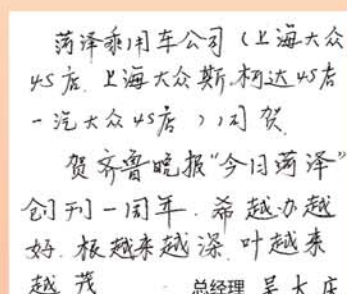 菏泽乘用车公司（上海大众
4S店.上海大众斯柯达4S店
一汽大众4S店）同贺
贺齐鲁晚报“今日菏泽”
创刊一周年.希越办越
好.根越来越深.叶越来
越茂
总经理 吴大庆